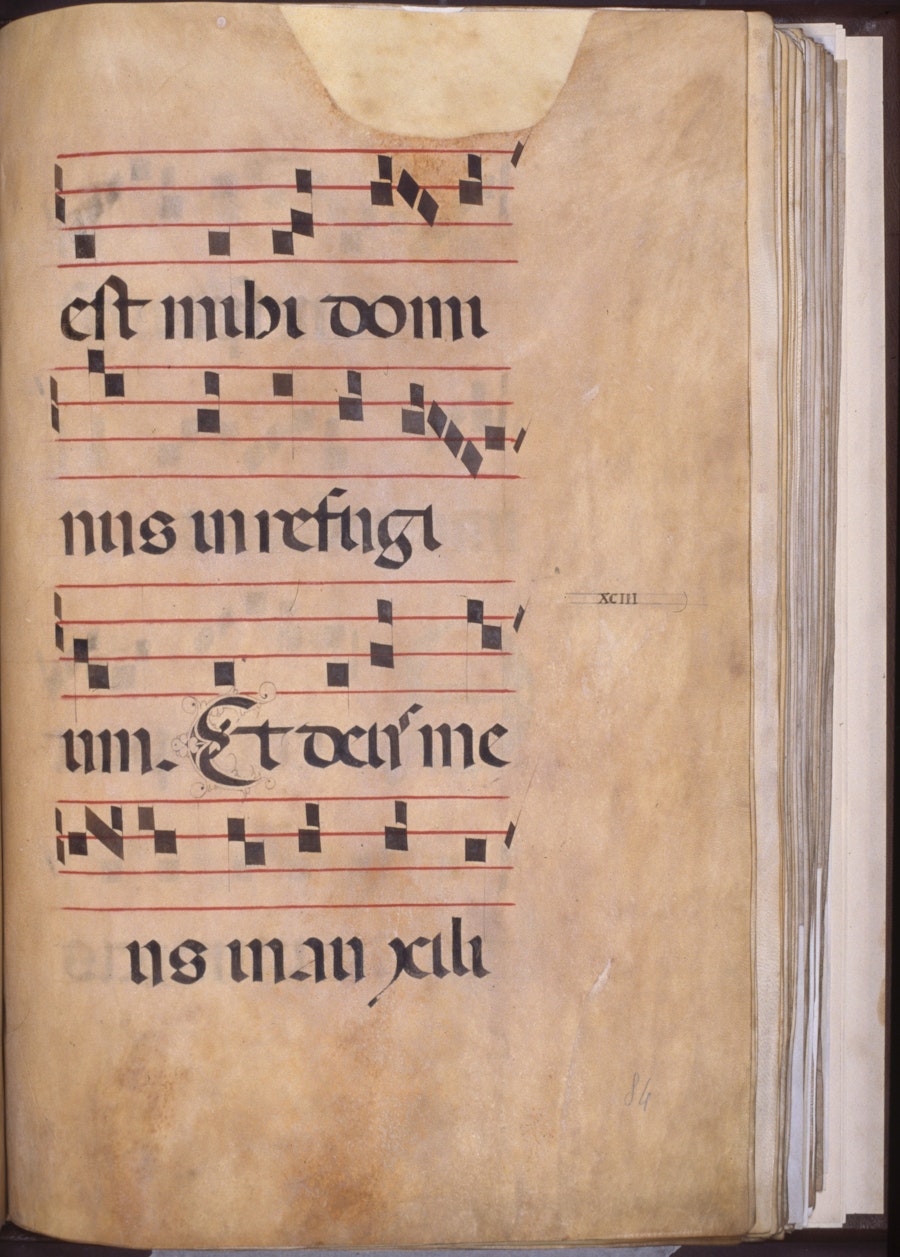 est mihi domi
nus in refugi
XCIII
um. Et deus me
us in au xili
84